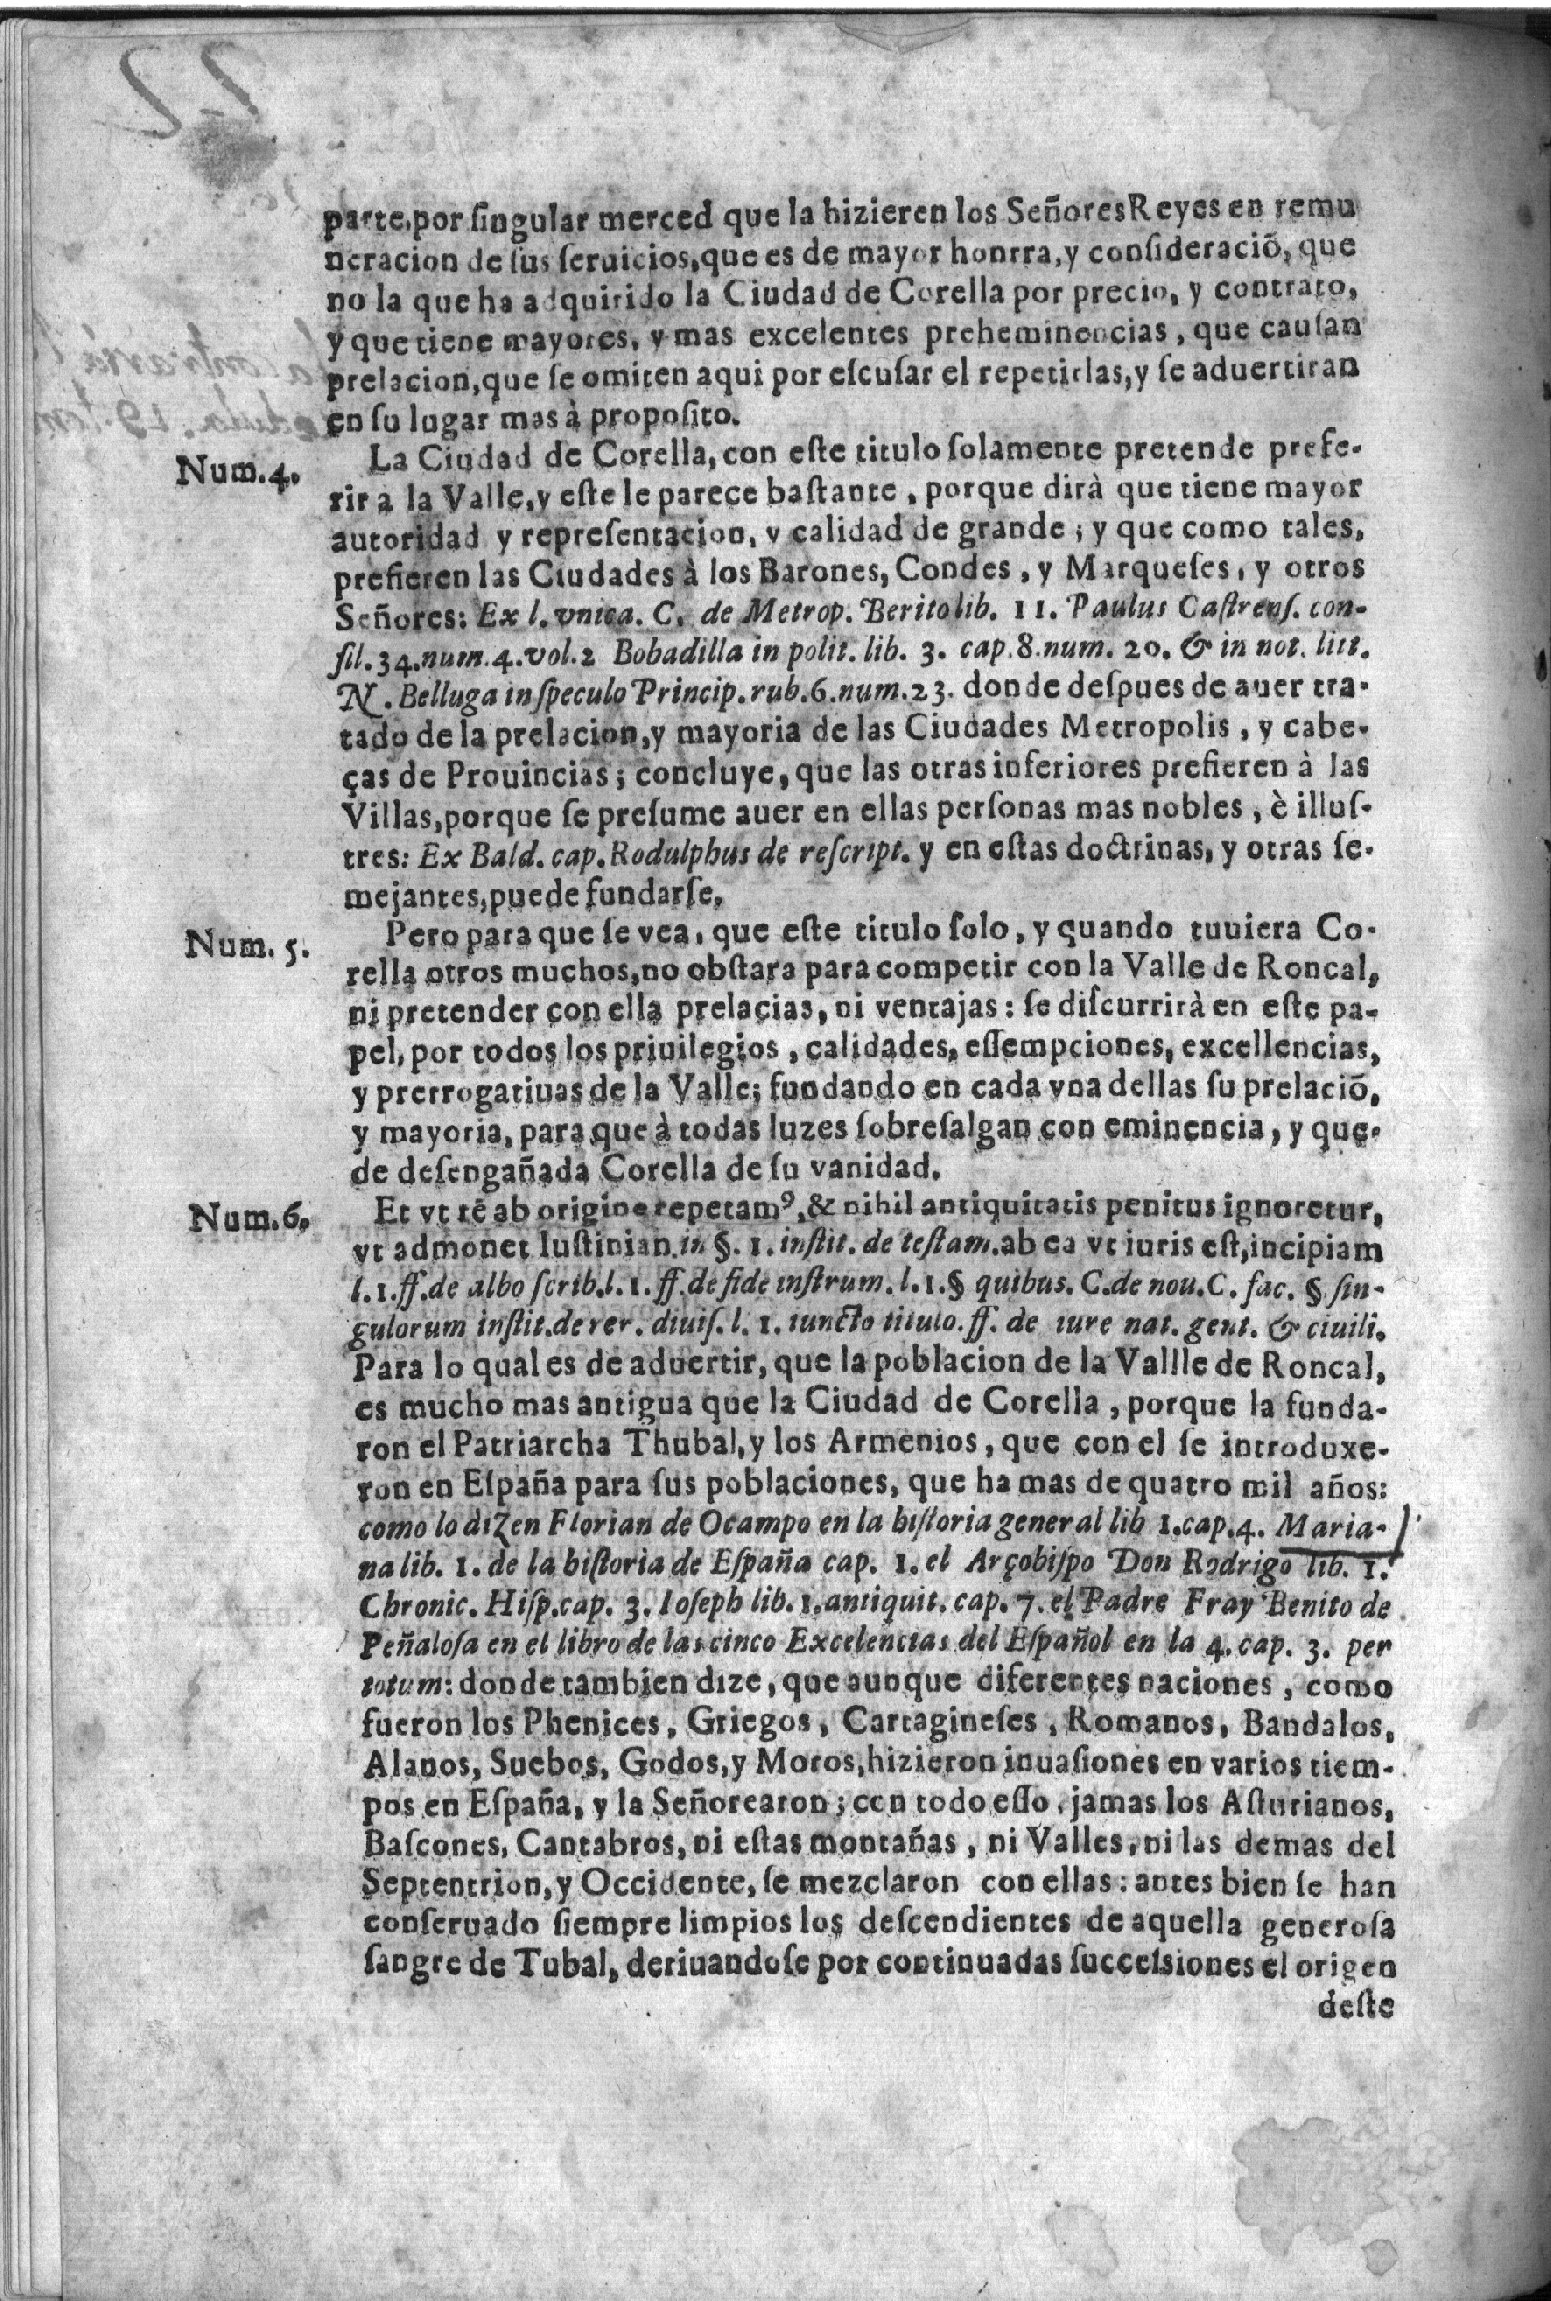 22
parte, por ſingular merced que la hizieren los Señores Reyes en remu
neracion de ſus ſeruicios, que es de mayor honrra, y conſideraciõ, que
no la que ha adquirido la Ciudad de Corella por precio, y contrato,
y que tiene mayores, y mas excelentes preheminencias, que cauſan
prelacion, que ſe omiten aqui por eſcuſar el repetirlas, y ſe aduertiran
en ſu lugar mas à propoſito.
Num. 4. La Ciudad de Corella, con eſte titulo ſolamente pretende prefe-
rir a la Valle, y eſte le parece baſtante, porque dirà que tiene mayor
autoridad y repreſentacion, y calidad de grande; y que como tales,
prefieren las Ciudades à los Barones, Condes, y Marqueſes, y otros
Señores: Ex l. vnica. C. de Metrop. Berito lib. 11. Paulus Caſtrenſ. con-
ſil. 34. num. 4. vol. 2 Bobadilla in polit. lib. 3. cap. 8. num. 20. & in not. litt.
N. Belluga in ſpeculo Princip. rub. 6. num. 23. donde deſpues de auer tra-
tado de la prelacion, y mayoria de las Ciudades Metropolis, y cabe-
ças de Prouincias; concluye, que las otras inferiores prefieren à las
Villas, porque ſe preſume auer en ellas perſonas mas nobles, è illuſ-
tres: Ex Bald. cap. Rodulphus de reſcript. y en eſtas doctrinas, y otras ſe-
mejantes, puede fundarſe.
Num. 5. Pero para que ſe vea, que eſte titulo ſolo, y quando tuuiera Co-
rella otros muchos, no obſtara para competir con la Valle de Roncal,
ni pretender con ella prelacias, ni ventajas: ſe diſcurrirà en eſte pa-
pel, por todos los priuilegios, calidades, eſſempciones, excellencias,
y prerrogatiuas de la Valle; fundando en cada vna dellas ſu prelaciõ,
y mayoria, para que à todas luzes ſobreſalgan con eminencia, y que-
de deſengañada Corella de ſu vanidad.
Num. 6. Et vt rẽ ab origine repetamꝰ, & nihil antiquitatis penitus ignoretur,
vt admonet Iuſtinian. in §. 1. inſtit. de teſtam. ab ea vt iuris eſt, incipiam
l. 1. ff. de albo ſcrib. l. 1. ff. de fide inſtrum. l. 1. § quibus. C. de nou. C. fac. § ſin-
gulorum inſtit. de rer. diuiſ. l. 1. iuncto titulo. ff. de iure nat. gent. & ciuili.
Para lo qual es de aduertir, que la poblacion de la Vallle de Roncal,
es mucho mas antigua que la Ciudad de Corella, porque la funda-
ron el Patriarcha Thubal, y los Armenios, que con el ſe introduxe-
ron en Eſpaña para ſus poblaciones, que ha mas de quatro mil años:
como lo dizen Florian de Ocampo en la hiſtoria general lib 1. cap. 4. Maria-
na lib. 1. de la hiſtoria de Eſpaña cap. 1. el Arçobiſpo Don Rodrigo lib. 1.
Chronic. Hiſp. cap. 3. Ioſeph lib. 1. antiquit. cap. 7. el Padre Fray Benito de
Peñaloſa en el libro de las cinco Excelencias del Eſpañol en la 4. cap. 3. per
totum: donde tambien dize, que aunque diferentes naciones, como
fueron los Phenices, Griegos, Cartagineſes, Romanos, Bandalos,
Alanos, Suebos, Godos, y Moros, hizieron inuaſiones en varios tiem-
pos en Eſpaña, y la Señorearon; con todo eſſo, jamas los Aſturianos,
Baſcones, Cantabros, ni eſtas montañas, ni Valles, ni las demas del
Septentrion, y Occidente, ſe mezclaron con ellas: antes bien ſe han
conſeruado ſiempre limpios los deſcendientes de aquella generoſa
ſangre de Tubal, deriuandoſe por continuadas ſucceſsiones el origen
deſte